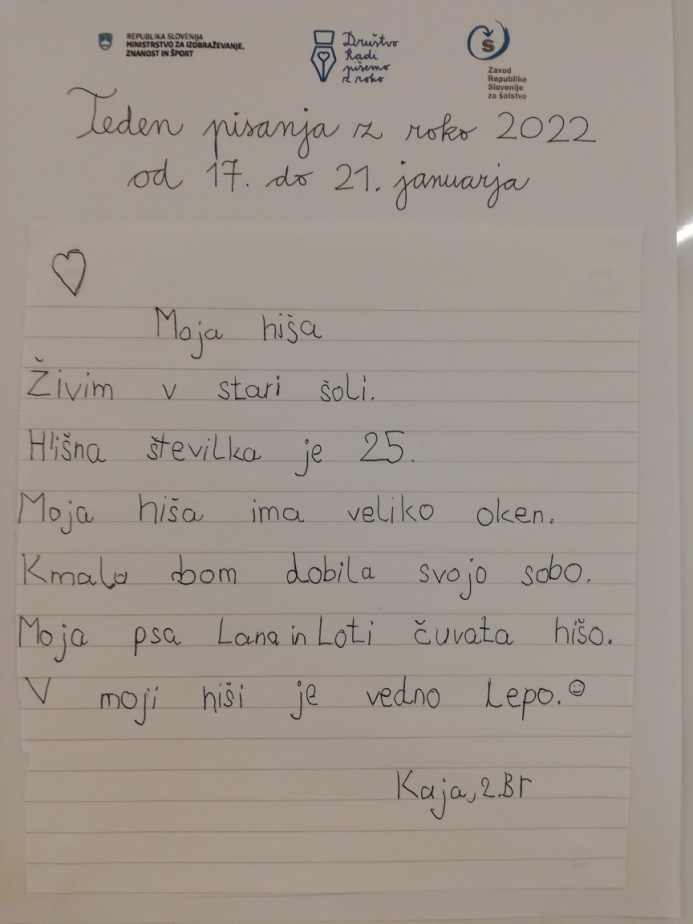 REPUBLIKA SLOVENIJA
MINISTRSTVO ZA IZOBRAŽEVANJE,
ZNANOST IN ŠPORT
Društvo
Radi
pišemo
z roko
Š
Zavod
Republike
Slovenije
za šolstvo
Teden pisanja z roko 2022
od 17. do 21. januarja
Moja hiša
Živim v stari šoli.
Hišna številka je 25.
Moja hiša ima veliko oken.
Kmalo bom dobila svojo sobo.
Moja psa Lana in Loti čuvata hišo.
V moji hiši je vedno lepo.☺
Kaja, 2.Br